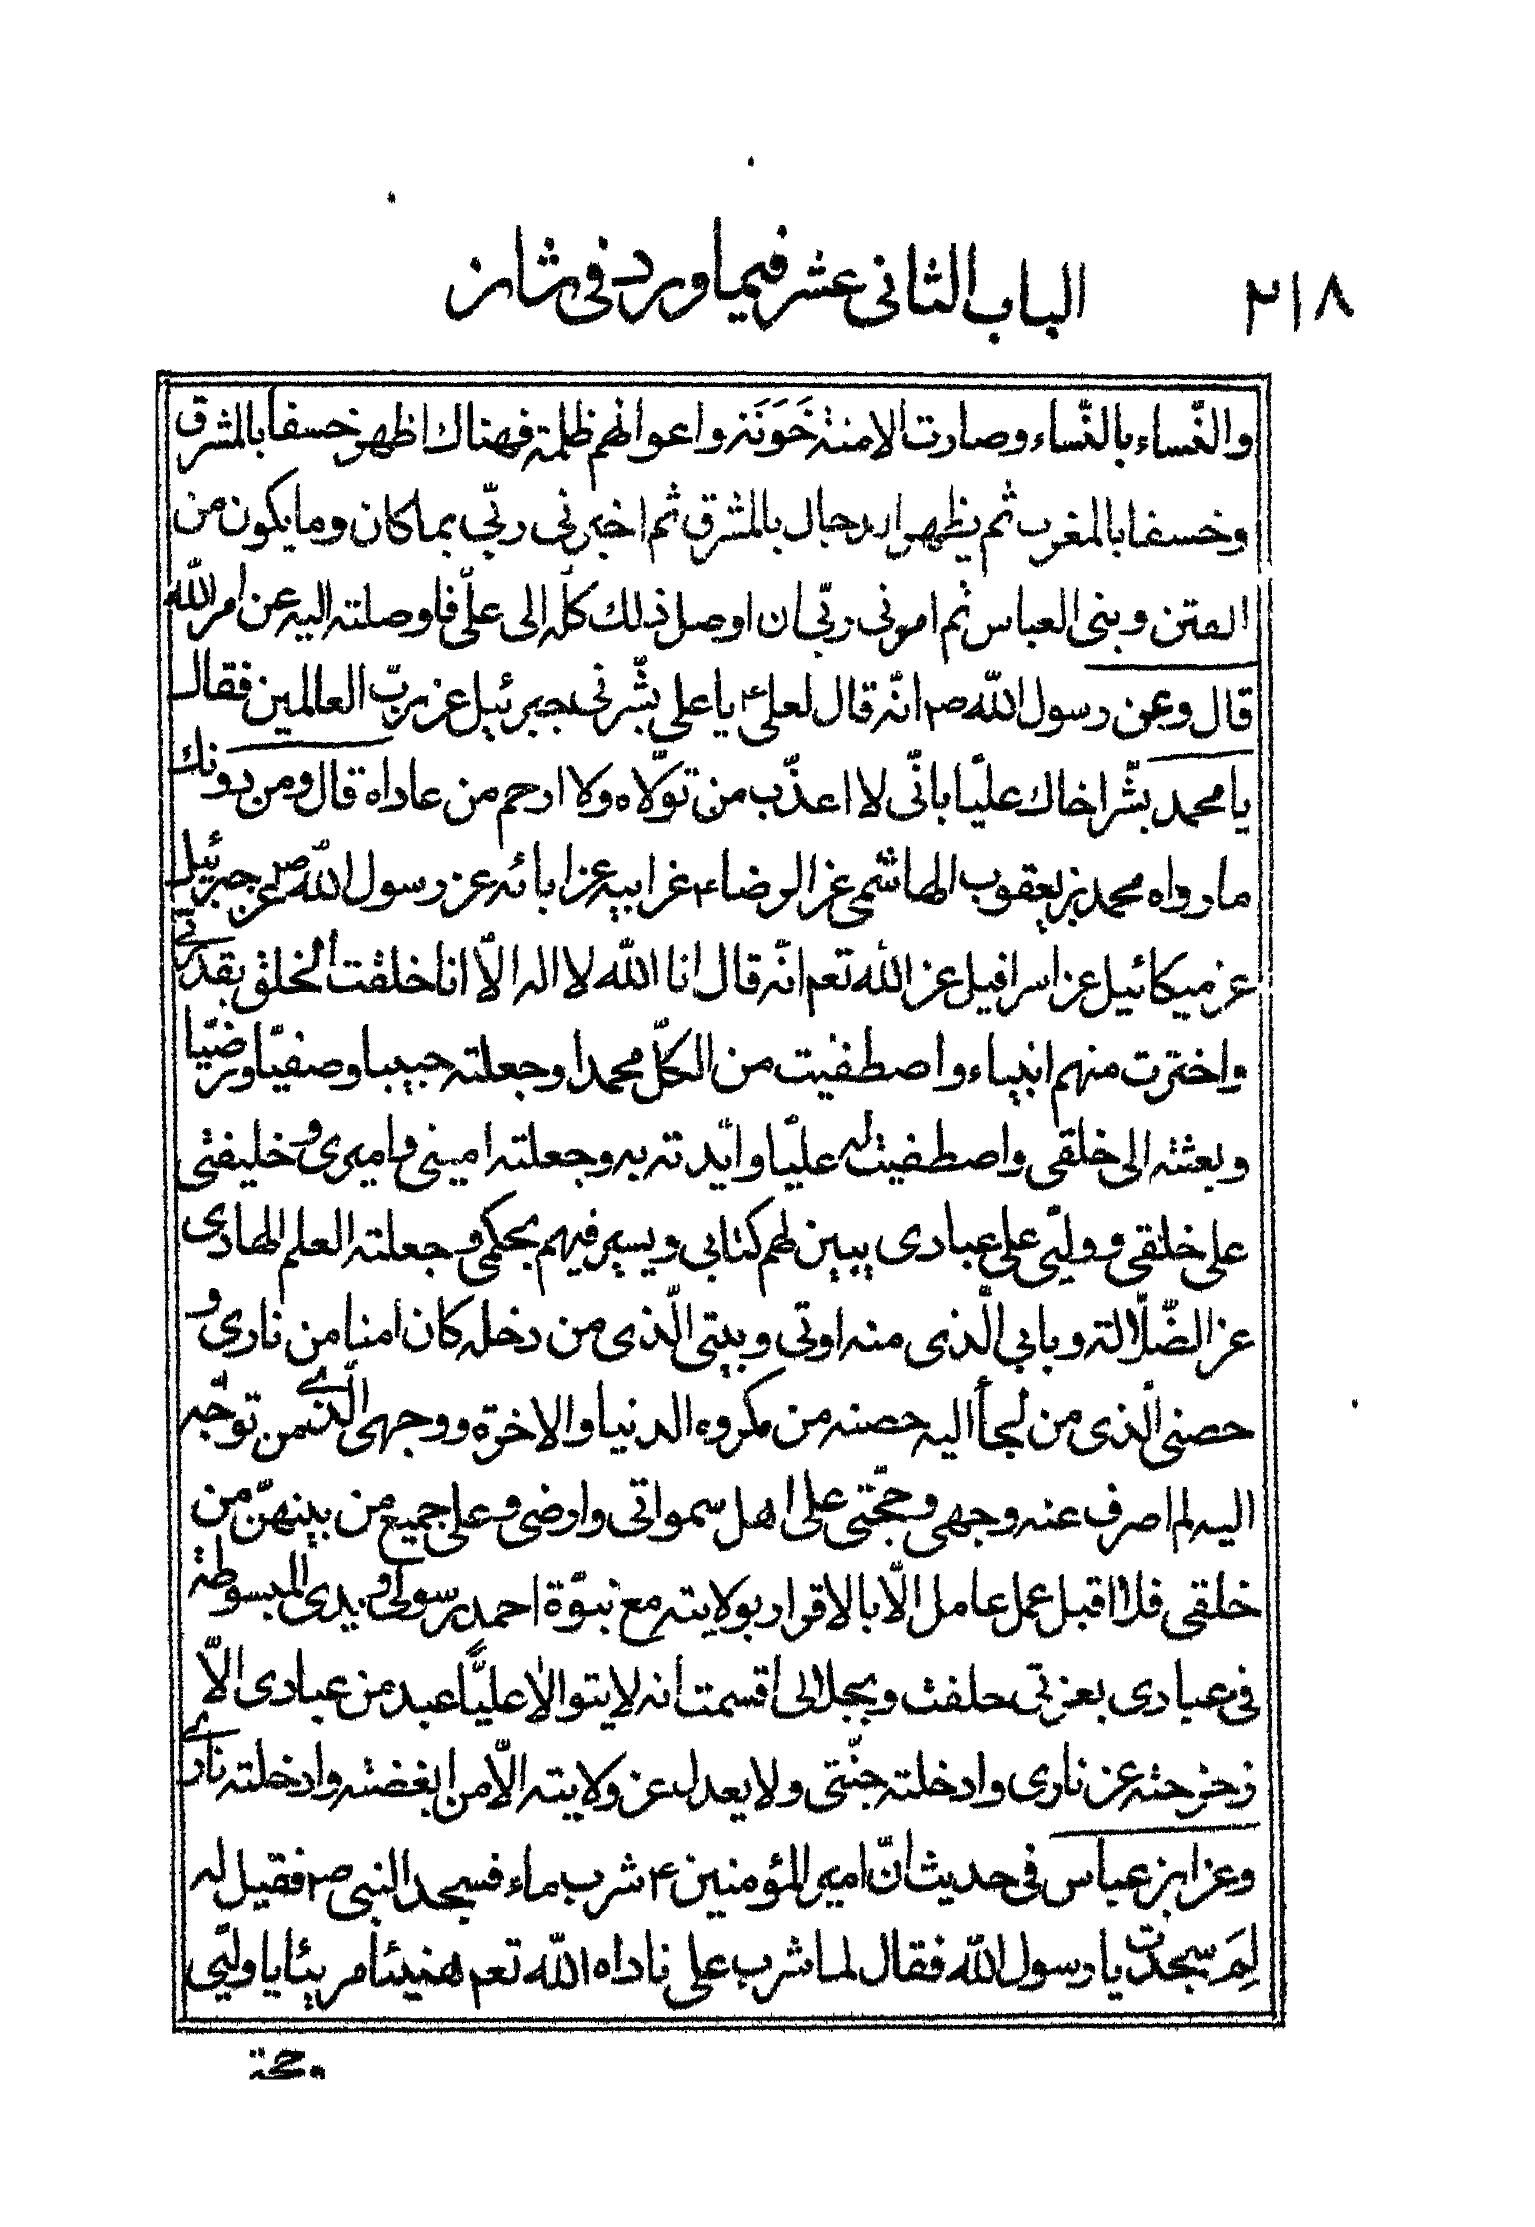 ٢١٨
الباب الثانی عشر فیما ورد فی شان
والنّساء بالنّساء وصارت الامنة خَوَنَة واعوانهم ظلمة فهناك اظهر خسفا بالمشرق
وخسفا بالمغرب ثم یظهر الدجال بالمشرق ثم اخبرنی ربّی بما کان وما یکون من
الفتن وبنی العباس ثم امرنی ربّی ان اوصل ذلك کلّه الی علیّ فاوصلته الیه عن امر الله
قال وعن رسول الله ص انّه قال لعلی ع یا علی بشّرنی جبرئیل عن ربّ العالمین فقال
یا محمد بشّر اخاك علیّا بانّی لا اعذّب من تولّاه ولا ارحم من عاداه قال ومن دونك
ما رواه محمد بن یعقوب الهاشمی عن الرضاء ع عن ابیه عن ابائه عن رسول الله ص عن جبرئیل
عن میکائیل عن اسرافیل عن الله تعم انّه قال انا الله لا اله الّا انا خلقت الخلق بقدرتی
واخترت منهم انبیاء واصطفیت من الکلّ محمدا وجعلته حبیبا وصفیّا ورضیّا
وبعثته الی خلقی واصطفیت له علیّا وایّدته به وجعلته امینی وامیری وخلیفتی
علی خلقی وولیّی علی عبادی یبین لهم کتابی ویسیر فیهم بحکمی وجعلته العلم الهادی
عن الضّلالة وبابی الّذی منه اوتی وبیتی الّذی من دخله کان امنا من ناری و
حصنی الّذی من لجأ الیه حصنه من مکروه الدنیا والاخرة ووجهی الّذی من توجّه
الیه لم اصرف عنه وجهی وحجّتی علی اهل سمواتی وارضی وعلی جمیع من بینهنّ من
خلقی فلا اقبل عمل عامل الّا بالاقرار بولایته مع نبوّة احمد رسولی ویدی المبسوطة
فی عبادی بعزتی حلفت وبجلالی اقسمت انه لا یتوالا علیًّا عبد من عبادی الّا
زحزحته عن ناری وادخلته جنّتی ولا یعدل عن ولایته الّا من ابغضته وادخلته ناری
وعن ابن عباس فی حدیث انّ امیر المؤمنین ع شرب ماء فسجد النبی ص فقیل له
لِمَ سجدت یا رسول الله فقال لما شرب علی ناداه الله تعم هنیئا مریئا یا ولیّی
وحجة